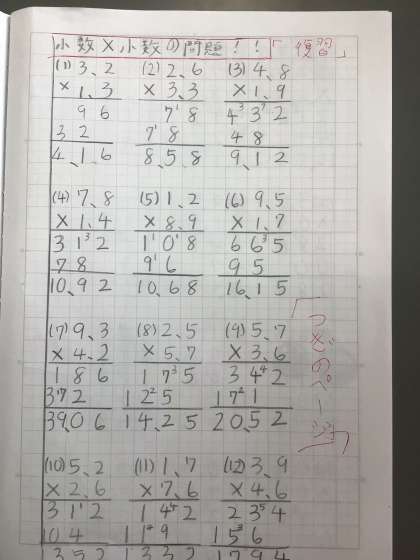 小数×小数の問題!!「復習」
(1)3、2 (2)2、6 (3)4、8
×1、3 ×3、3 ×1、9
96 78 432
32 78 48
4、16 8、58 9、12
(4)7、8 (5)1、2 (6)9、5
×1、4 ×8、9 ×1、7
312 108 665
78 96 95
10、92 10、68 16、15
(7)9、3 (8)2、5 (9)5、7
×4、2 ×5、7 ×3、6
186 175 342
372 125 171
39、06 14、25 20、52
「つぎのページ」
(10)5、2 (11)1、7 (12)3、9
×2、6 ×7、6 ×4、6
312 142 234
104 119 156
1352 1332 1794